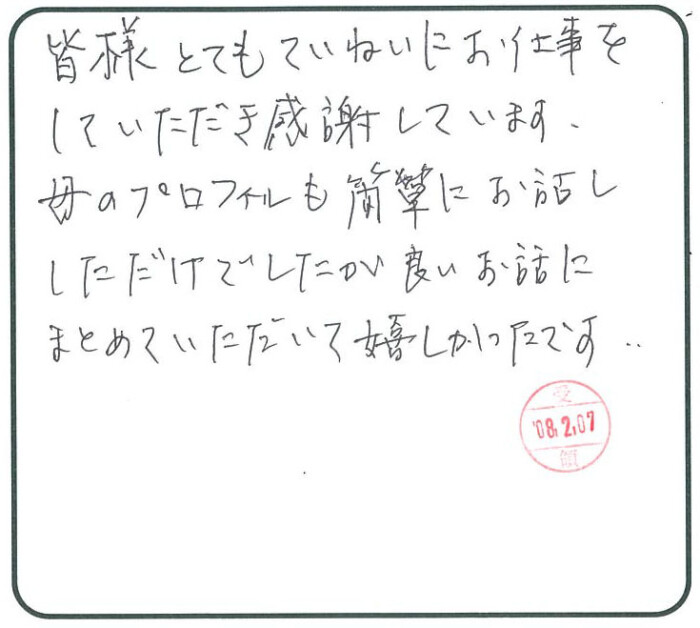 皆様とてもていねいにお仕事を
していただき感謝しています、
母のプロフィルも簡単にお話し
しただけでしたが良いお話に
まとめていただいて嬉しかったです..
受
'08.2.07
領